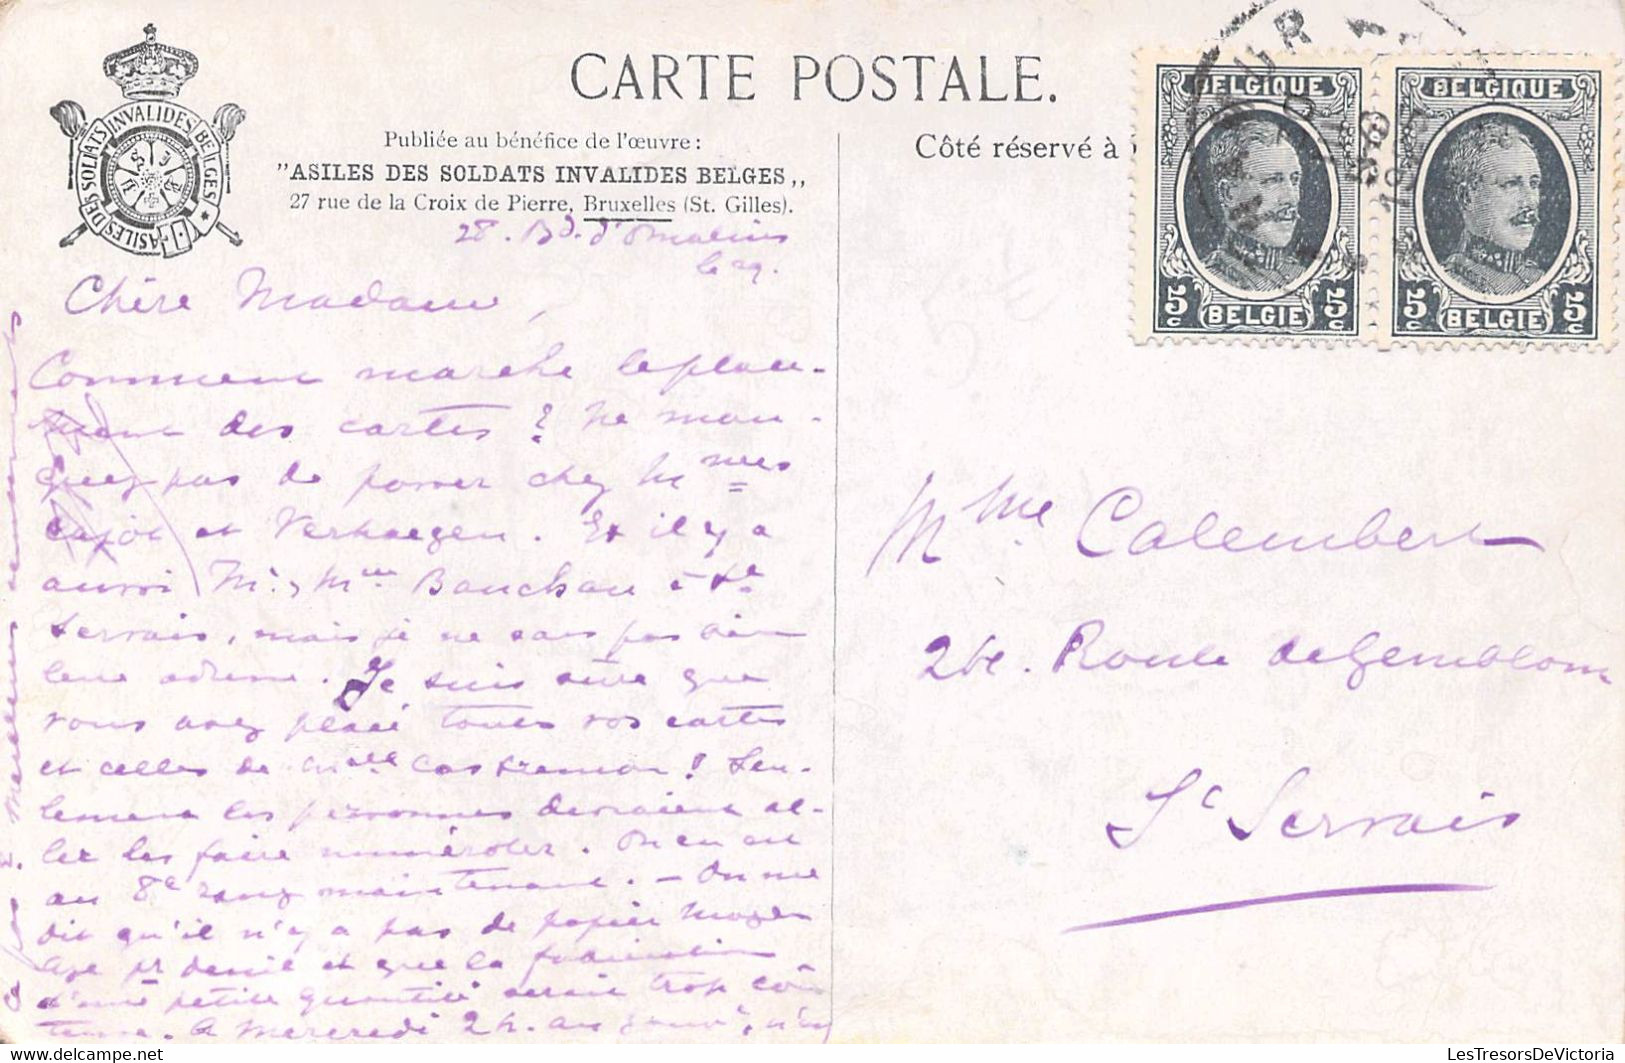 ASILES DES SOLDATS INVALIDES BELGES
CARTE POSTALE.
Publiée au bénéfice de l'œuvre :
"ASILES DES SOLDATS INVALIDES BELGES,,
27 rue de la Croix de Pierre, Bruxelles (St. Gilles).
Côté réservé à
BELGIQUE
5c 5c
BELGIE
BELGIQUE
5c 5c
BELGIE
28. Bd. d'Omalius
le 29.
Chère Madame,
Comment marche le place-
ment des cartes ? Ne man-
quez pas de passer chez Mmes
et Verhaegen. Et il y a
aussi Mr. Mme Bauchau à St
Servais, mais je ne sais pas bien
leur adresse. Je suis sûre que
vous avez placé toutes vos cartes
et celles de Melle ! Seu-
lement les personnes devraient al-
ler les faire numéroter. On en est
au 8e rang maintenant. - On me
dit qu'il n'y a pas de papier
pr et que la fabrication
d'une petite quantité serait trop coû-
teuse. Mercredi 2h. au
Mme Calembert
Route de Gembloux
St Servais
LesTresorsDeVictoria.com
LesTresorsDeVictoria